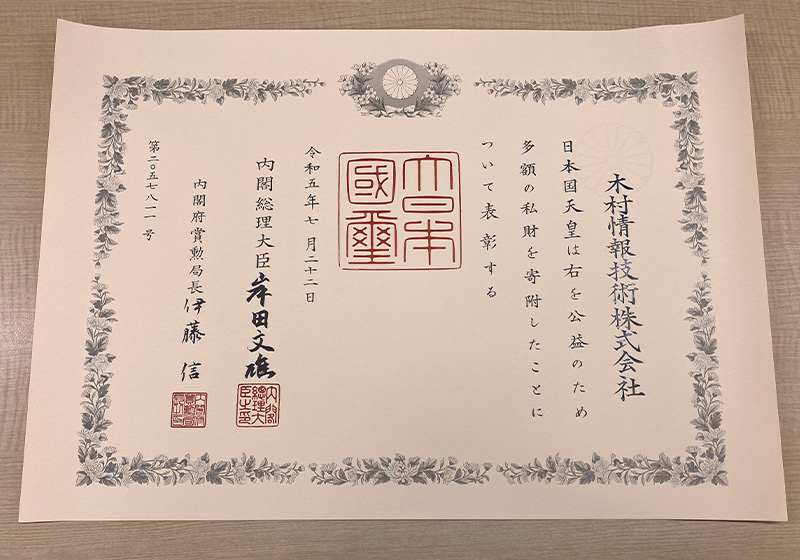 木村情報技術株式会社
日本国天皇は右を公益のため
多額の私財を寄附したことに
ついて表彰する
大日本
國璽
令和五年七月二十二日
内閣総理大臣 岸田文雄
内閣総理大臣之印
内閣府賞勲局長 伊藤 信
第二〇五七八一一号